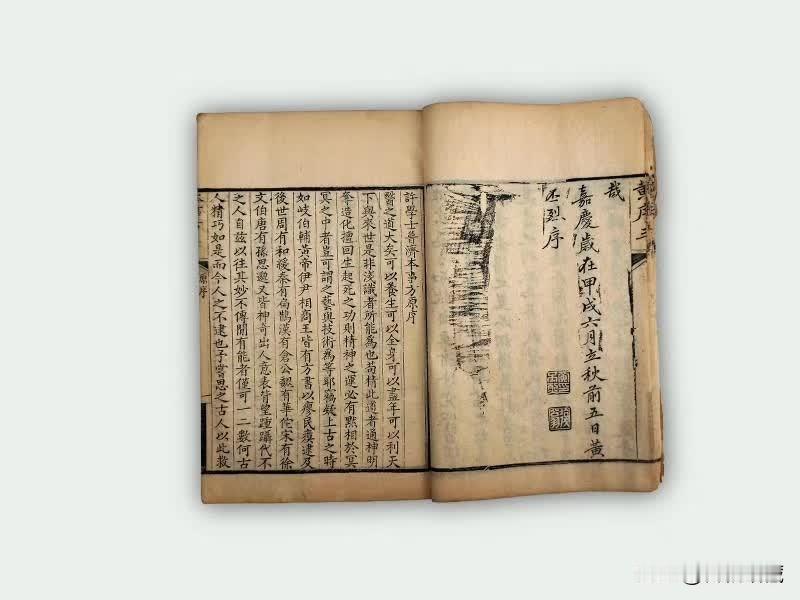 黃序三
哉
嘉慶歲在甲戌六月立秋前五日黃
丕烈序
許學士普濟本事方原序
醫之道大矣可以養生可以全身可以盡年可以利天
下與來世是非淺識者所能為也苟精此道者通神明
奪造化擅回生起死之功則精神之運必有黙相於冥
冥之中者豈可謂之藝與技術為等耶竊疑上古之時
如岐伯輔黃帝伊尹相商王皆有方書以療民瘼逮及
後世周有和緩秦有扁鵲漢有倉公魏有華佗宋有徐
文伯唐有孫思邈又皆神奇出人意表背望踵躡代不
乏人自茲以往其妙不傳間有能者僅可一二數何古
人精巧如是而今人之不逮也予嘗思之古人以此救
原序